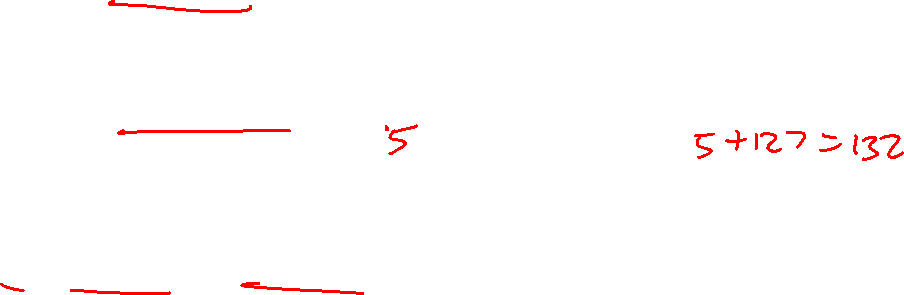 5 5+127=132